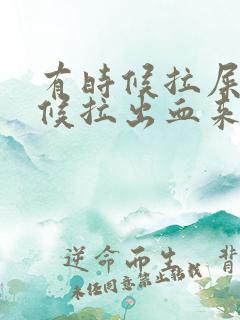 有时候拉屎
候拉出血来
逆命而生
未经同意禁止转载